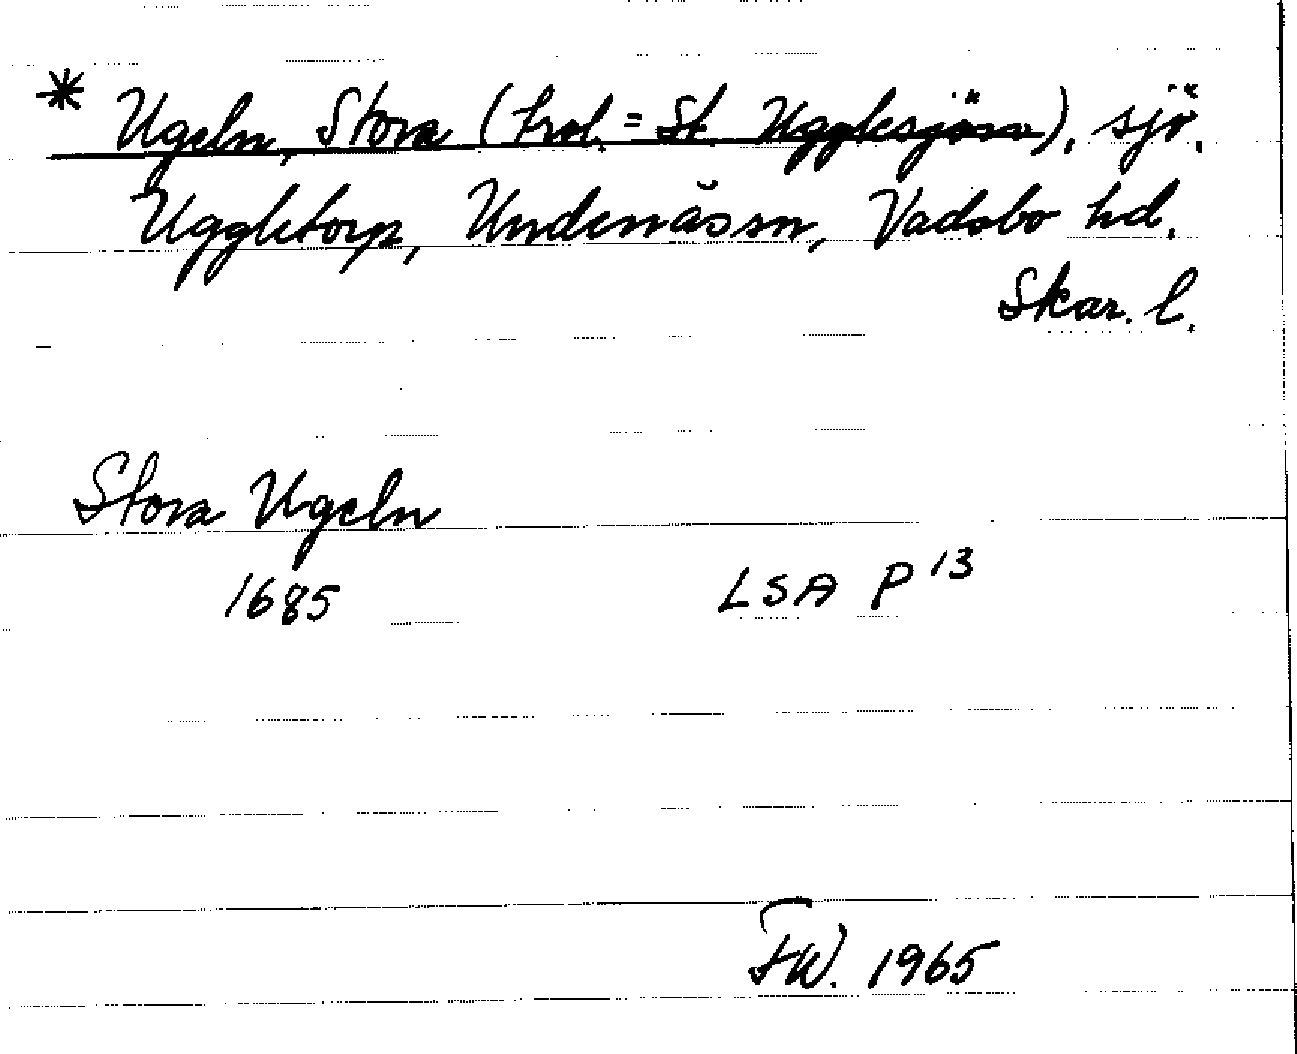 * Ugeln, Stora (trol. = St. Ugglesjöarna), sjö.
Uggletorp, Undenäs sn, Vadsbo hd.
Skar. l.
Stora Ugeln
1685 LSA P 13
FW. 1965